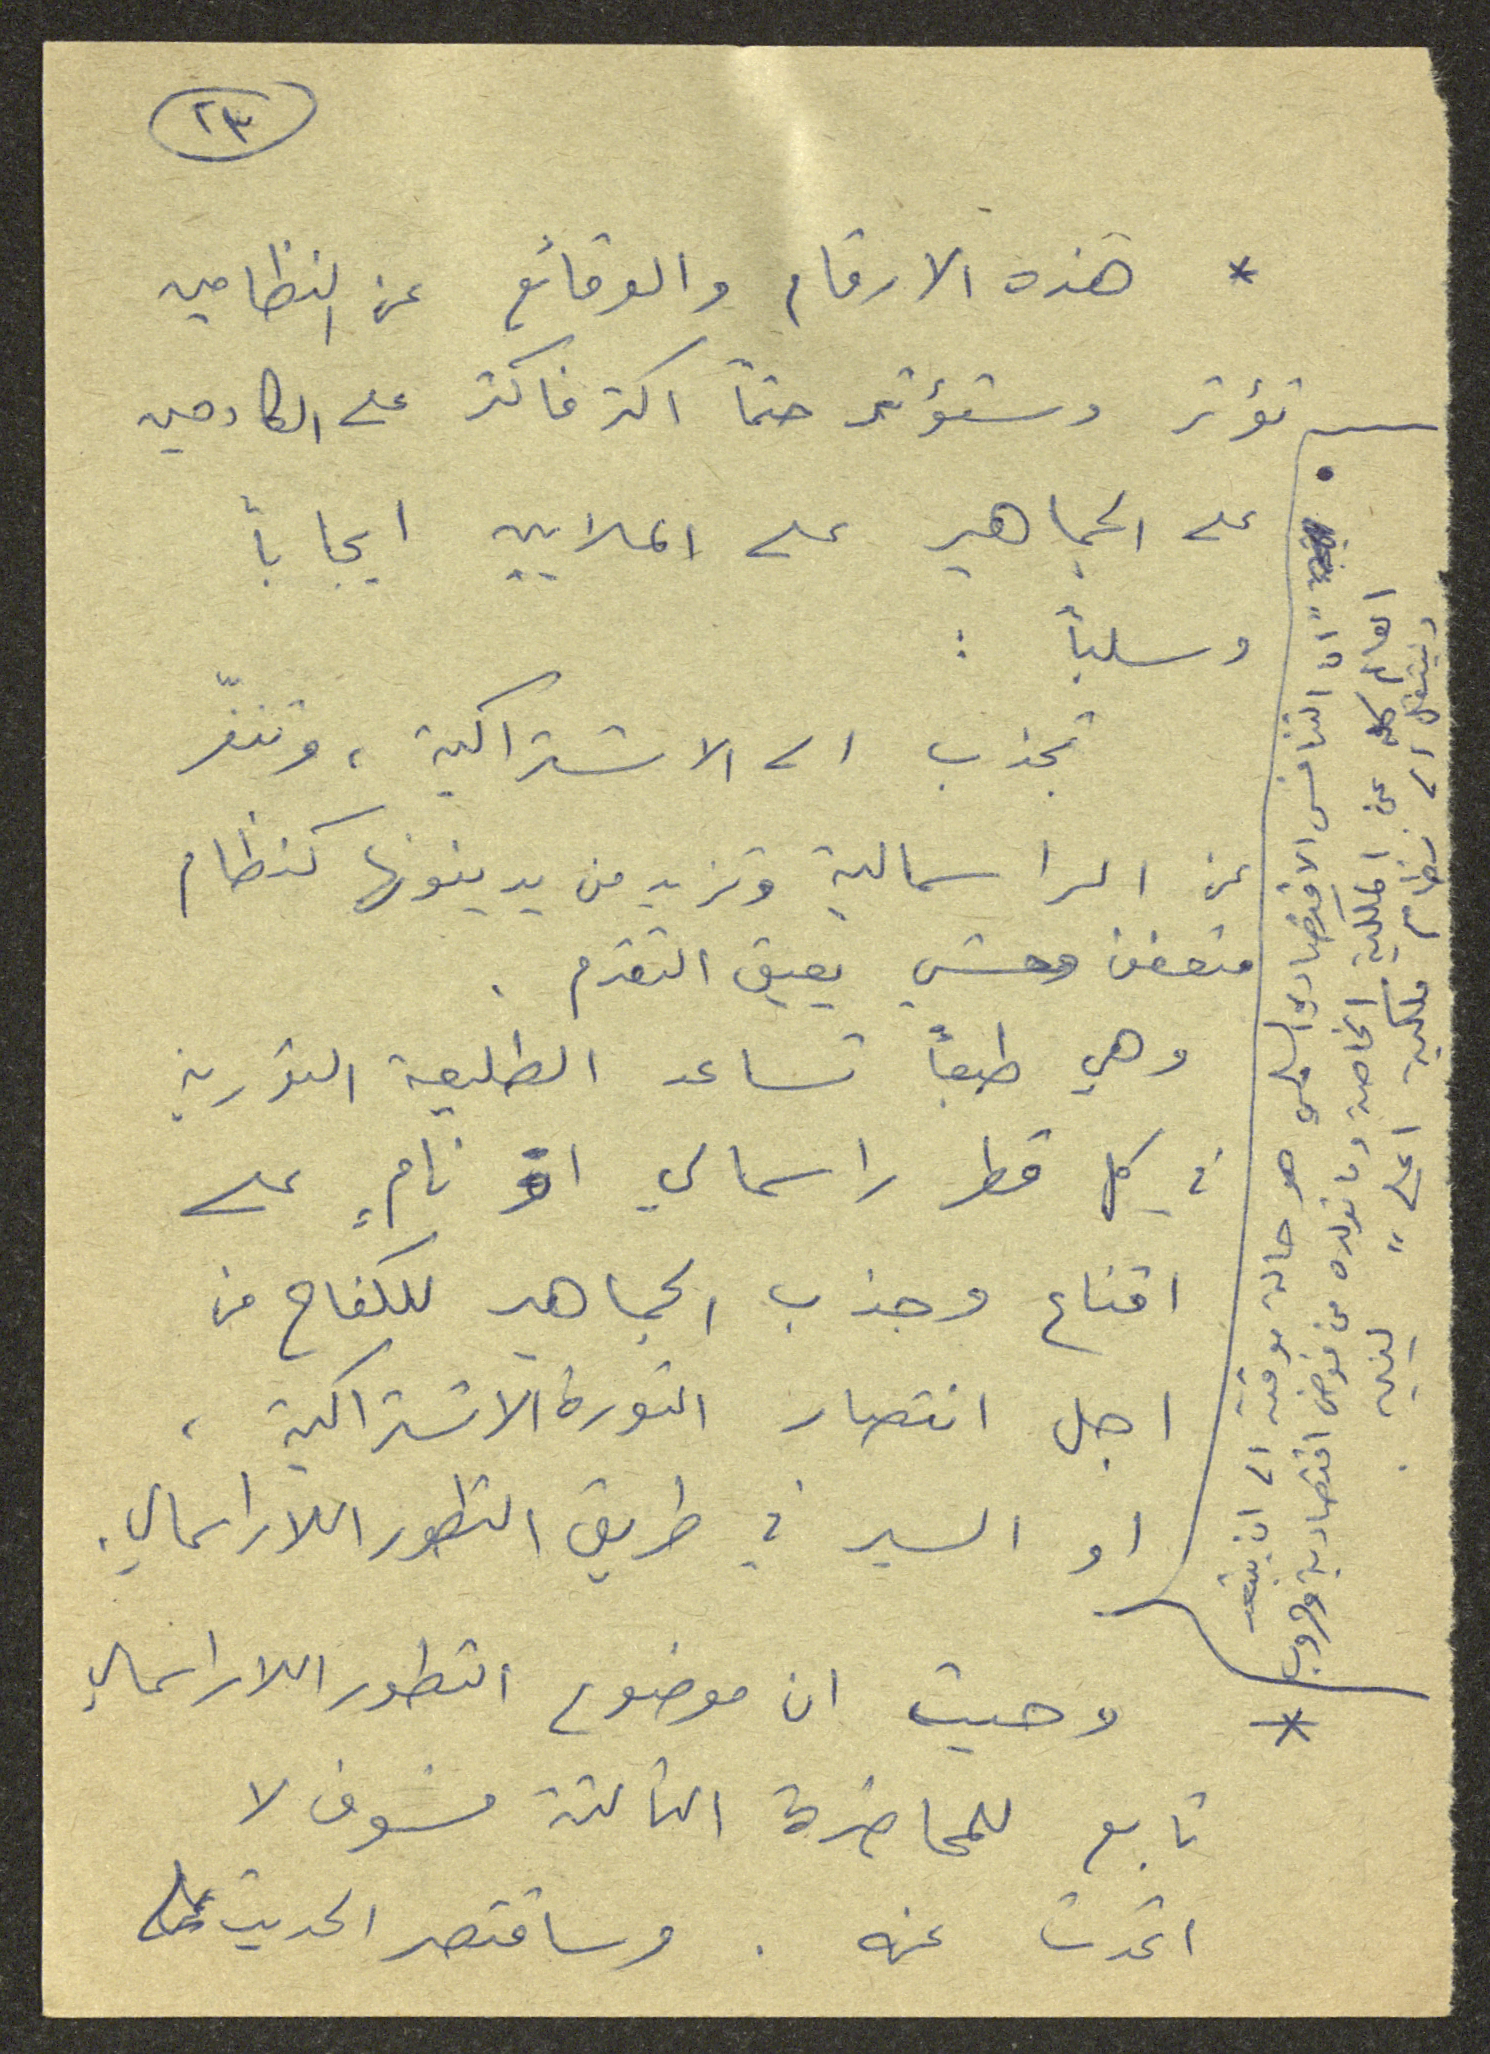 ٢٣
* هذه الارقام والوقائع عن النظامين
تؤثر وستؤثر حتماً اكثر فاكثر على الكادحين
على الجماهير على الملايين ايجاباً
وسلباً :
تجذب الى الاشتراكية ، وتنفّر
عن الراسمالية وتزيد من يدينونها كنظام
متعفن وحشي يعيق التقدم .
وهي طبعاً تساعد الطليعة الثورية
في كل قطر راسمالي او نامٍ على
اقناع وجذب الجماهير للكفاح من
اجل انتصار الثورة الاشتراكية ،
او السير في طريق التطور اللاراسمالي .
* وحيث ان موضوع التطور اللاراسمالي
تابع للمحاضرة الثالثة فسوف لا
اتحدث عنه . وساقتصر الحديث على
• "ان التنافس الاقتصادي السلمي هو حالة موقتة الى ان يبتعد
العالم كله عن الملكية الخاصة وما تولده من فوضى اقتصادية وحروب
وينتقل الى نظام ملكية اعلى" لينين .